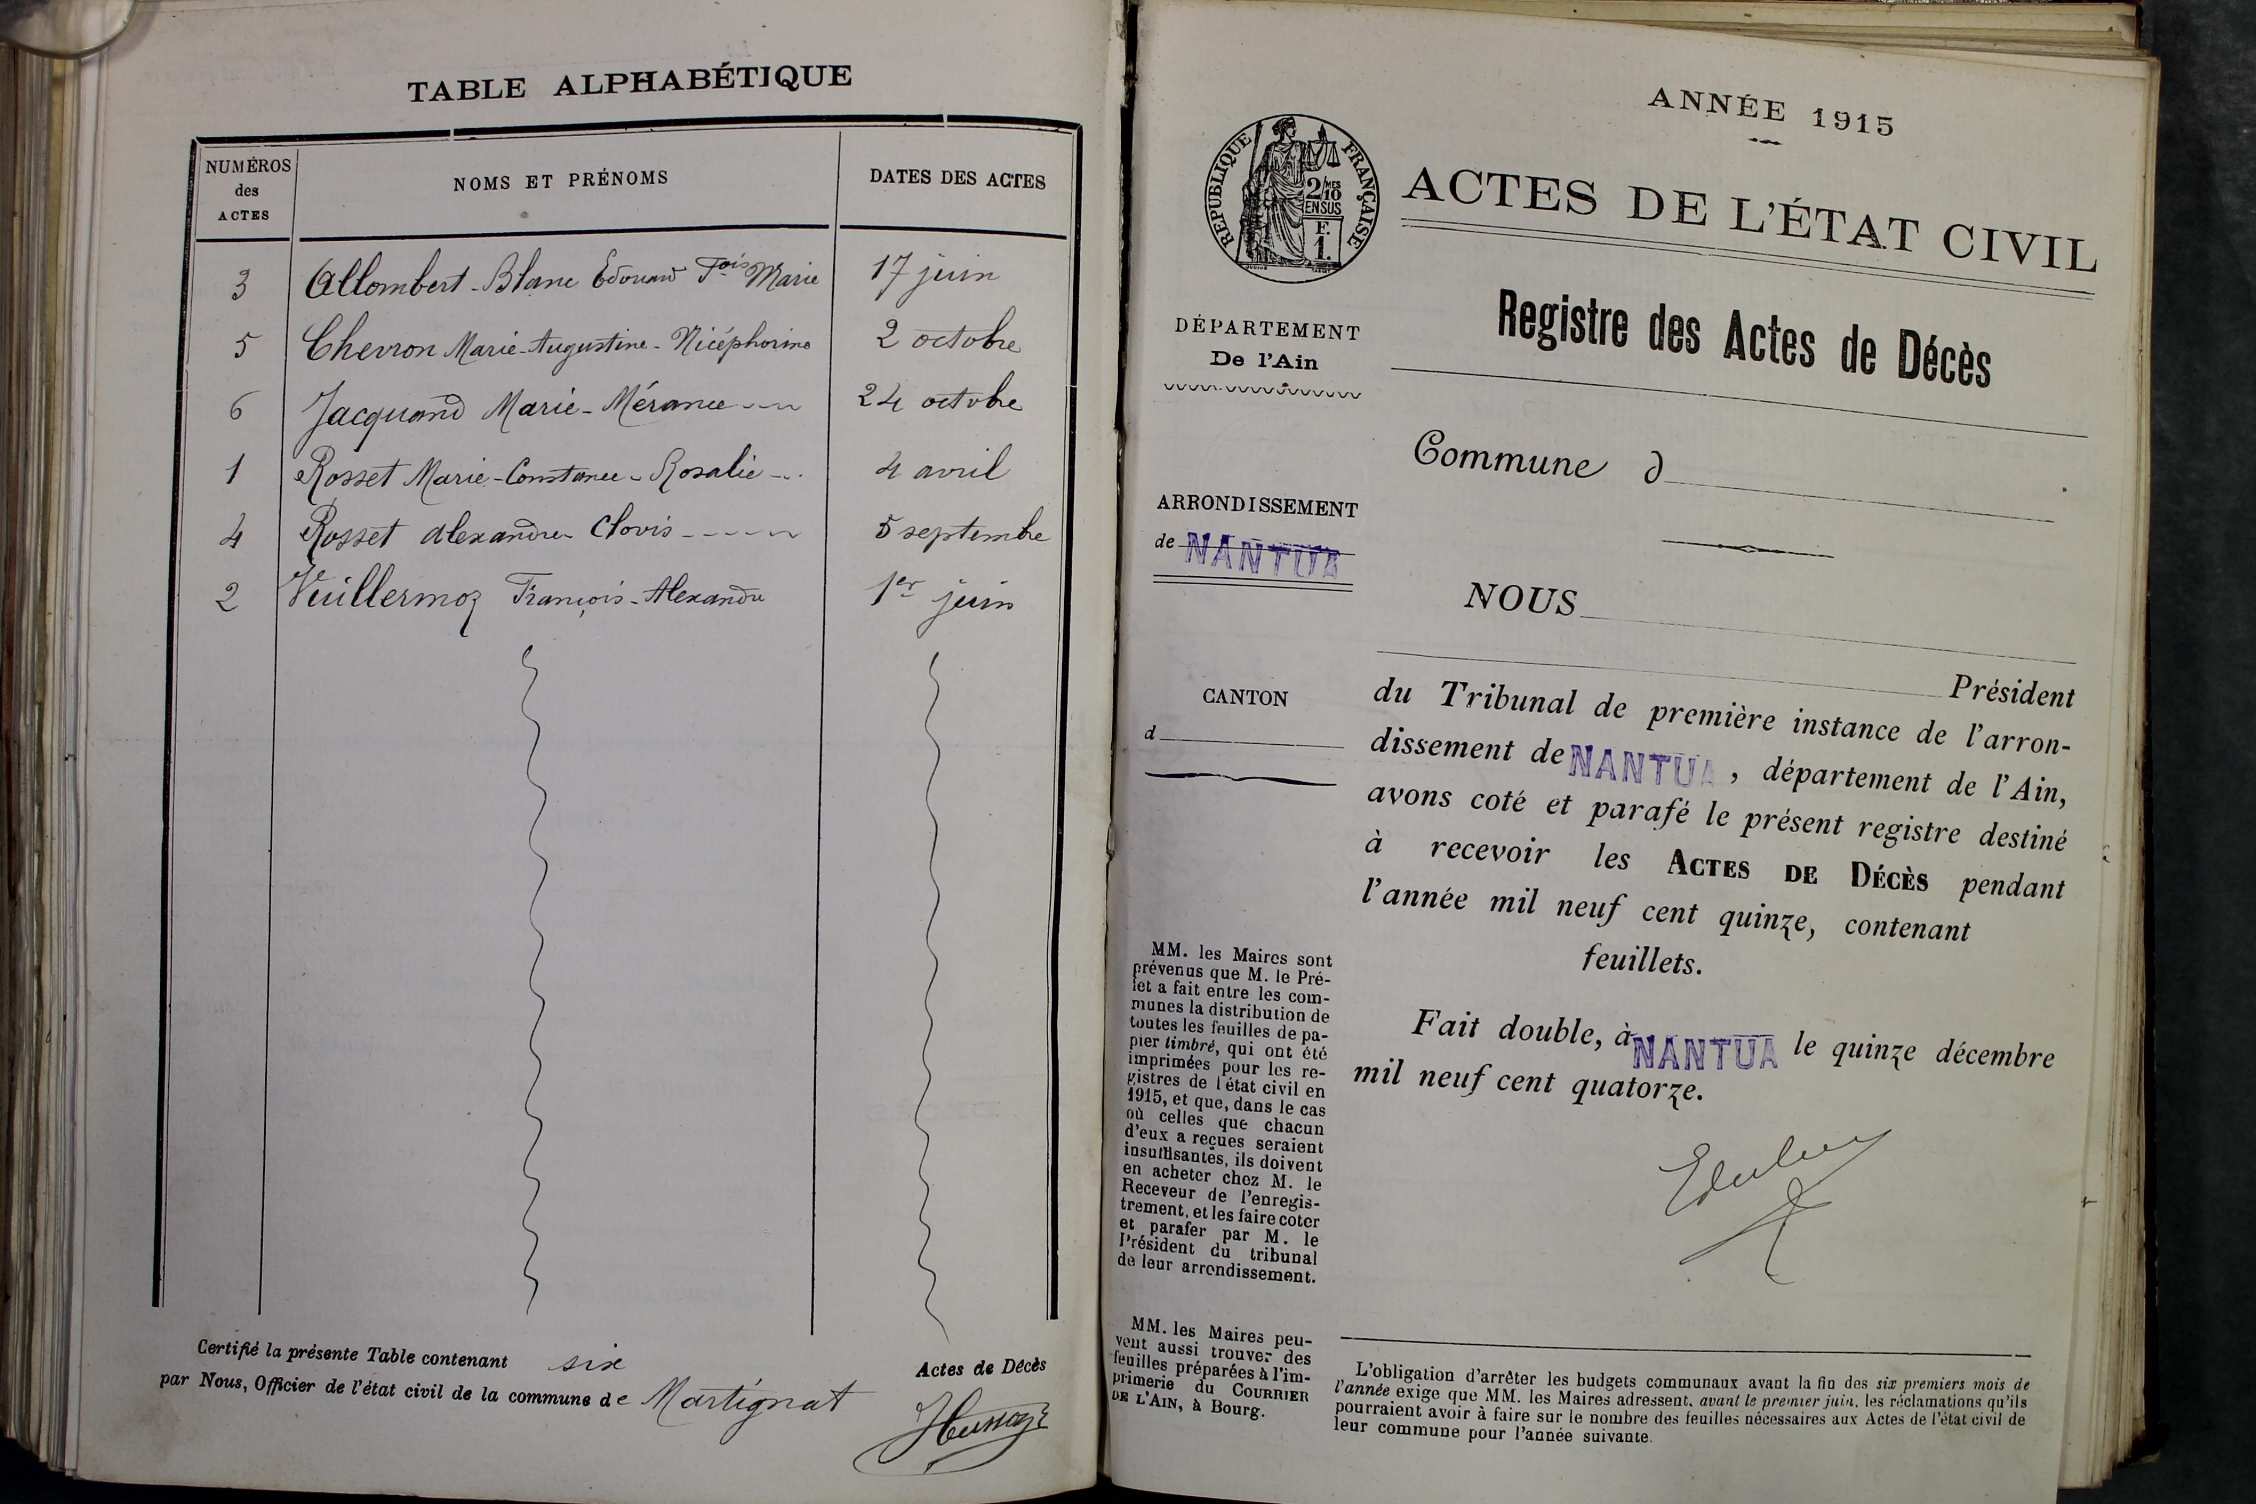 TABLE ALPHABÉTIQUE
NUMÉROS
des
ACTES
NOMS ET PRÉNOMS
DATES DES ACTES
3 Allombert-Blanc Edouard Fois Marie 17 juin
5 Chevron Marie-Augustine-Nicéphorine 2 octobre
6 Jacquand Marie-Mérance 24 octobre
1 Rosset Marie-Constance-Rosalie 4 avril
4 Rosset Alexandre-Clovis 5 septembre
2 Vuillermoz François-Alexandre 1er juin
Certifié la présente Table contenant six Actes de Décès
par Nous, Officier de l'état civil de la commune de Martignat
ANNÉE 1915
RÉPUBLIQUE FRANÇAISE
2/10MES
EN SUS
F.
1.
ACTES DE L'ÉTAT CIVIL
Registre des Actes de Décès
DÉPARTEMENT
De l'Ain
Commune d
ARRONDISSEMENT
de NANTUA
NOUS
CANTON
d
Président
du Tribunal de première instance de l'arron-
dissement de NANTUA, département de l'Ain,
avons coté et parafé le présent registre destiné
à recevoir les ACTES DE DÉCÈS pendant
l'année mil neuf cent quinze, contenant
feuillets.
Fait double, à NANTUA le quinze décembre
mil neuf cent quatorze.
MM. les Maires sont
prévenus que M. le Pré-
fet a fait entre les com-
munes la distribution de
toutes les feuilles de pa-
pier timbré, qui ont été
imprimées pour les re-
gistres de l'état civil en
1915, et que, dans le cas
où celles que chacun
d'eux a reçues seraient
insuffisantes, ils doivent
en acheter chez M. le
Receveur de l'enregis-
trement, et les faire coter
et parafer par M. le
Président du tribunal
de leur arrondissement.
MM. les Maires peu-
vent aussi trouver des
feuilles préparées à l'im-
primerie du COURRIER
DE L'AIN, à Bourg.
L'obligation d'arrêter les budgets communaux avant la fin des six premiers mois de
l'année exige que MM. les Maires adressent, avant le premier juin, les réclamations qu'ils
pourraient avoir à faire sur le nombre des feuilles nécessaires aux Actes de l'état civil de
leur commune pour l'année suivante.